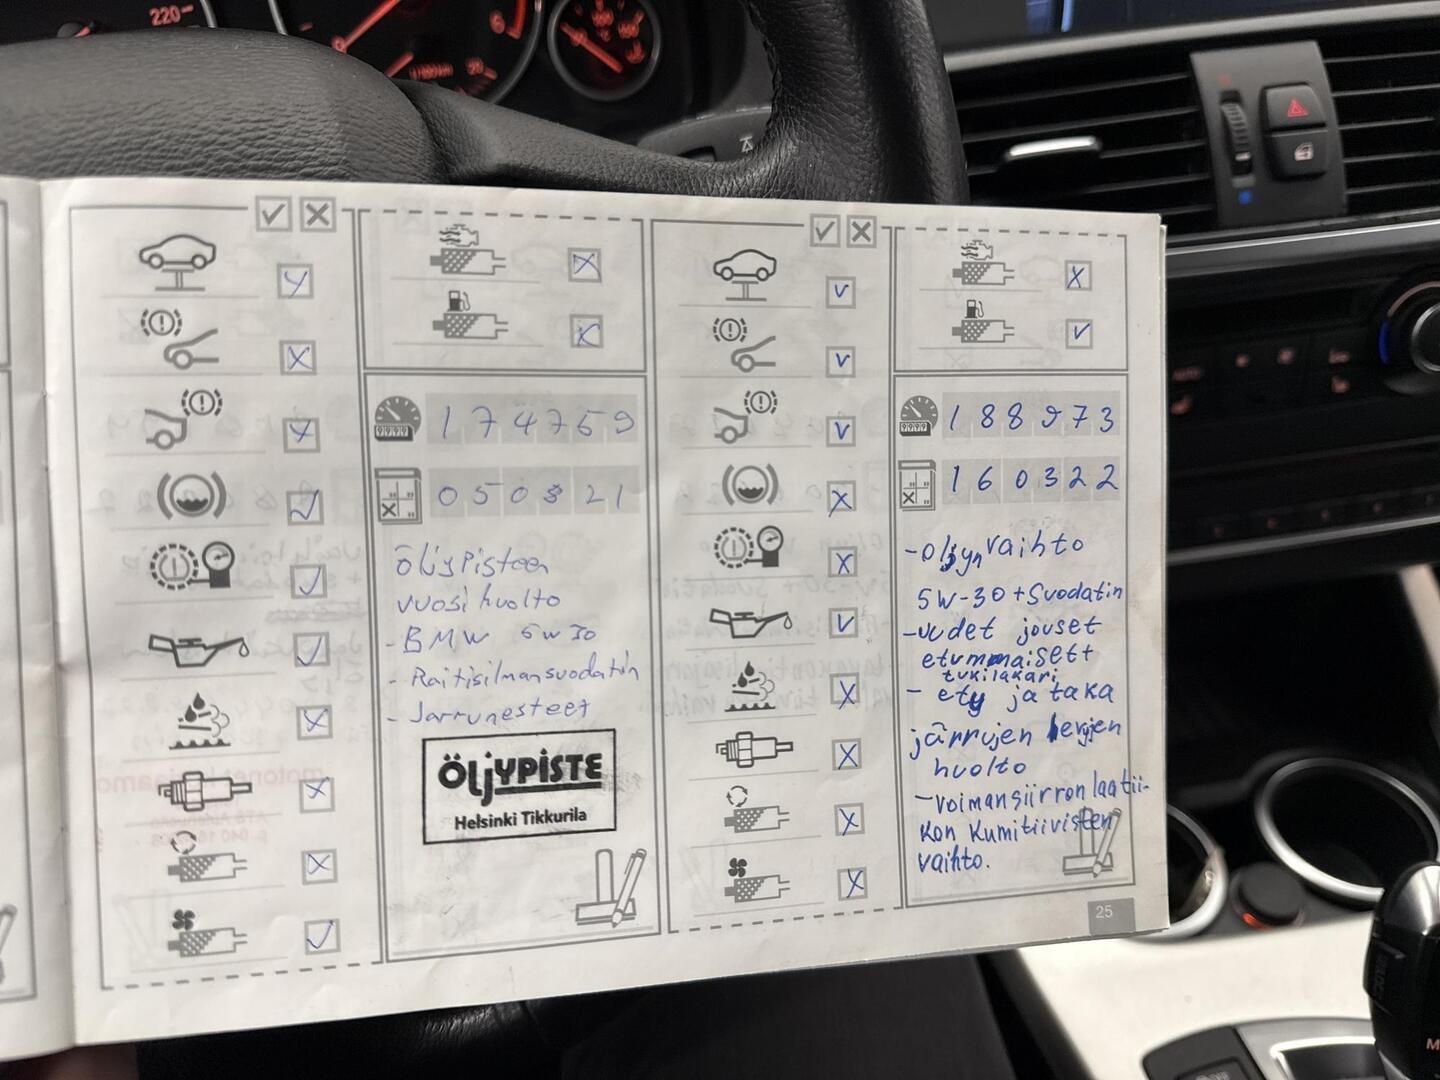 220
6
1/1000km
20
174759
050821
öljypisteen
vuosihuolto
- BMW 5w30
- Raitisilmansuodatin
- Jarrunesteet
ÖLJYPISTE
Helsinki Tikkurila
188973
160322
- öljynvaihto
5W-30 + Suodatin
- uudet jouset
etummaisett
tukilakari
- etu ja taka
järrujen levyjen
huolto
- voimansiirron laatii-
kon kumitiivisteen
vaihto.
25
AUTO
M